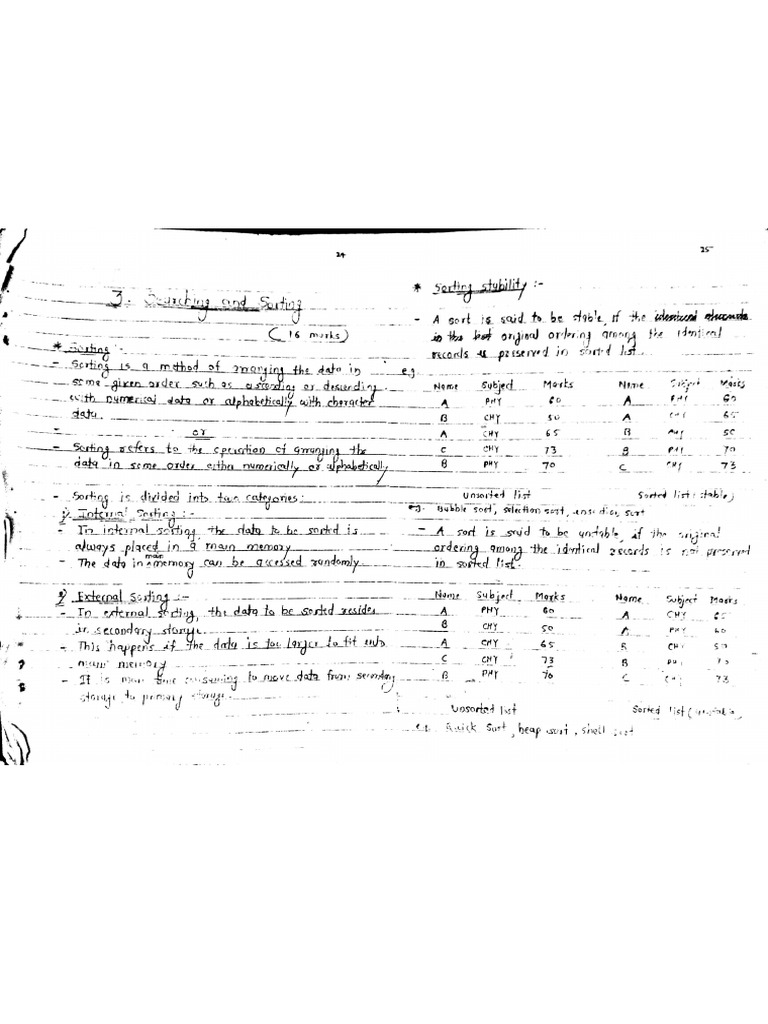 24
3. Searching and Sorting
(16 marks)
* Sorting :-
- Sorting is a method of arranging the data in
some given order such as ascending or descending
with numerical data or alphabetically with character
data.
- or
- Sorting refers to the operation of arranging the
data in some order either numerically or alphabetically
- Sorting is divided into two categories:
1) Internal Sorting :-
- In internal sorting, the data to be sorted is
always placed in a main memory
- The data in main memory can be accessed randomly.
2) External Sorting :-
- In external sorting, the data to be sorted resides
in secondary storage
- This happens if the data is too larger to fit into
main memory
- It is more time consuming to move data from secondary
storage to primary storage.
25
* Sorting stability :-
- A sort is said to be stable if the
in the original ordering among the identical
records is preserved in sorted list.
e.g.
Name Subject Marks Name Subject Marks
A PHY 60 A PHY 60
B CHY 50 A CHY 65
A CHY 65 B PHY 50
C CHY 73 B PHY 70
B PHY 70 C CHY 73
Unsorted list Sorted list (stable)
eg. Bubble sort, selection sort, insertion sort
- A sort is said to be unstable, if the original
ordering among the identical records is not preserved
in sorted list.
Name Subject Marks Name Subject Marks
A PHY 60 A CHY 65
B CHY 50 A PHY 60
A CHY 65 B CHY 50
C CHY 73 B PHY 70
B PHY 70 C CHY 73
Unsorted list Sorted list (unstable)
e.g. Quick Sort, heap sort, shell sort